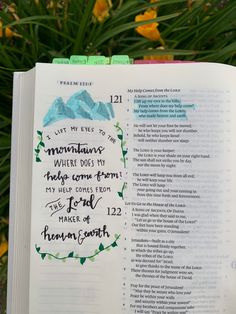 PSALM
121
I LIFT MY EYES TO THE
mountains
WHERE DOES MY
help come from?
MY HELP COMES FROM
THE Lord
MAKER OF
heaven & earth
My Help Comes from the LORD
A SONG OF ASCENTS.
I lift up my eyes to the hills.
From where does my help come?
My help comes from the LORD,
who made heaven and earth.
He will not let your foot be moved;
he who keeps you will not slumber.
Behold, he who keeps Israel
will neither slumber nor sleep.
The LORD is your keeper;
the LORD is your shade on your right hand.
The sun shall not strike you by day,
nor the moon by night.
The LORD will keep you from all evil;
he will keep your life.
The LORD will keep
your going out and your coming in
from this time forth and forevermore.
Let Us Go to the House of the LORD
122
A SONG OF ASCENTS. OF DAVID.
I was glad when they said to me,
"Let us go to the house of the LORD!"
Our feet have been standing
within your gates, O Jerusalem!
Jerusalem—built as a city
that is bound firmly together,
to which the tribes go up,
the tribes of the LORD,
as was decreed for Israel,
to give thanks to the name of the LORD.
There thrones for judgment were set,
the thrones of the house of David.
Pray for the peace of Jerusalem!
"May they be secure who love you!
Peace be within your walls
and security within your towers!"
For my brothers and companions' sake
I will say, "Peace be within you!"